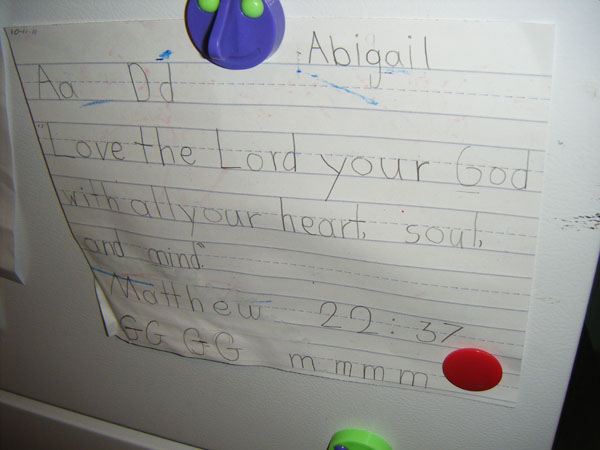 Abigail
Aa Dd
"Love the Lord your God
with all your heart, soul,
and mind."
Matthew 22:37
GG GG m m m m